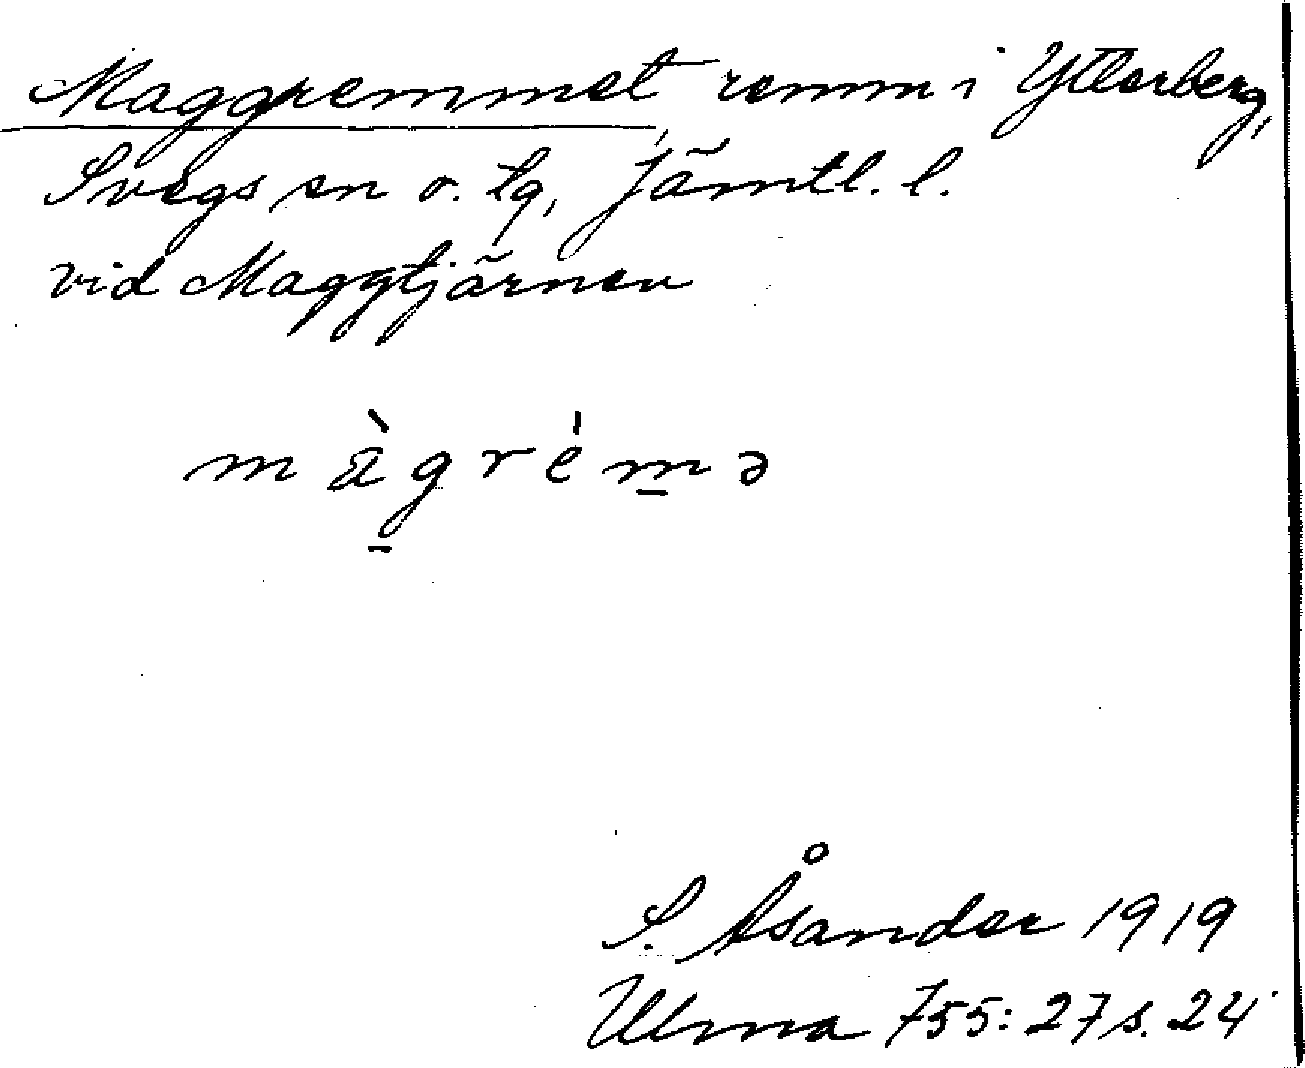 Maggremmet, remm i Ytterberg,
Svegs sn o. tg, Jämtl. l.
vid Maggtjärnen
màgrémə
S. Åsander 1919
Ulma 755:27 s. 24